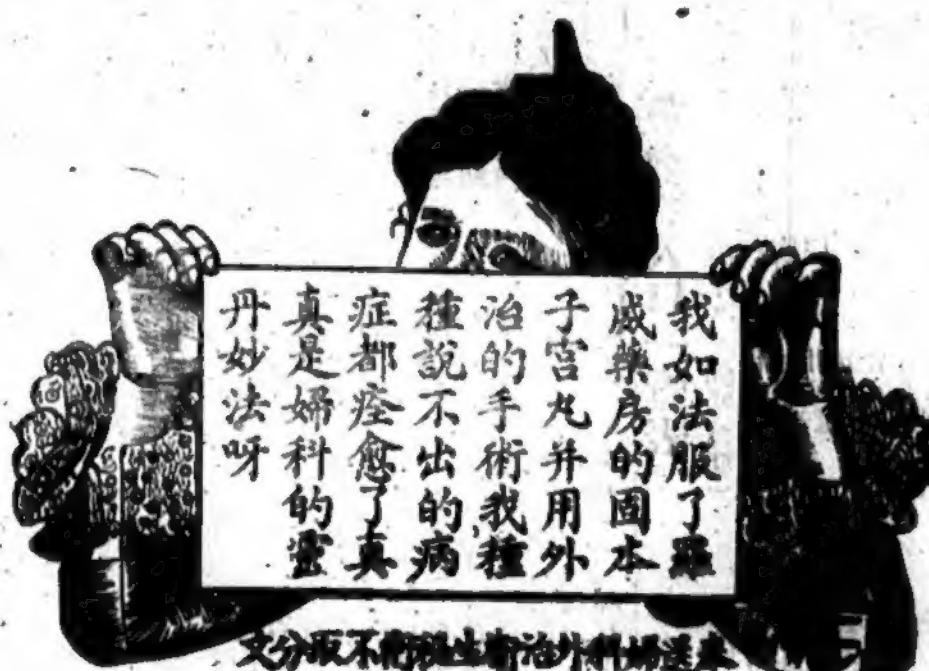 我如法服了羅
威藥房的固本
子宮丸并用外
治的手術我種
種說不出的病
症都痊愈了真
真是婦科的靈
丹妙法呀
送婦科外治衛生術不取分文